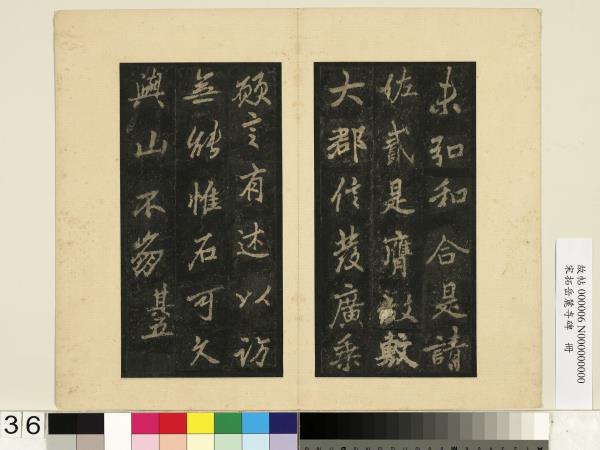 未弘和合是請
佐貳是膺鼓敷
大郡信發廣乘
願言有述以訪
無能惟石可久
與山不崩其五
故帖 000006 N000000000
宋拓岳麓寺碑 冊
36